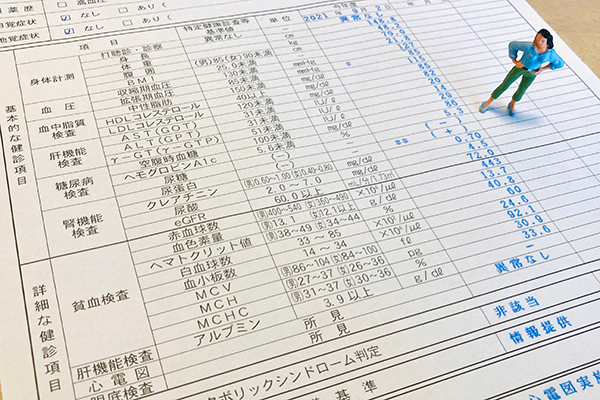 薬歴 高血圧
自覚症状 ☑ なし □ あり (
項目 特定健康診査等基準値 単位 今年度
2021年 9月 2日
基本的な健診項目
打聴診・診察 異常なし 異常なし
身体計測
身長 cm 148.8
体重 kg 48.2
腹囲 (男)85(女)90未満 cm 70.0
BMI 25.0未満 21.8
血圧
収縮期血圧 130未満 mmHg 127
拡張期血圧 85未満 mmHg ※ 85
血中脂質検査
中性脂肪 150未満 mg/dℓ 115
HDLコレステロール 40以上
LDLコレステロール 120未満
肝機能検査
AST(GOT) 31未満 IU/ℓ 20
ALT(GPT) 31未満 IU/ℓ 14
γ-GT(γ-GTP) 51未満 IU/ℓ
糖尿病検査
空腹時血糖 100未満 mg/dℓ 86
ヘモグロビンA1c 5.6未満 % 5.3
尿糖 (−) (−)
腎機能検査
尿蛋白 (−) ※※ (+)
クレアチニン (男)0.60~1.00 (女)0.40~0.80 mg/dℓ 0.70
尿酸 2.0~7.0 mg/dℓ 4.5
eGFR 60.0以上 72.0
詳細な健診項目
貧血検査
赤血球数 (男)400~540 (女)360~490 443
血色素量 (男)13.1 (女)12.1以上 g/dℓ 13.7
ヘマトクリット値 (男)38~49 (女)34~44 % 40.8
白血球数 33~85 60
血小板数 14~34 24.6
MCV (男)86~104 (女)84~100 fℓ 92.1
MCH (男)27~37 (女)26~36 pg 30.9
MCHC (男)31~37 (女)30~36 % 33.6
アルブミン 3.9以上 g/dℓ −
肝機能検査
心電図 所見 異常なし
眼底検査 所見
タボリックシンドローム判定 非該当
基準 情報提供
心電図実施